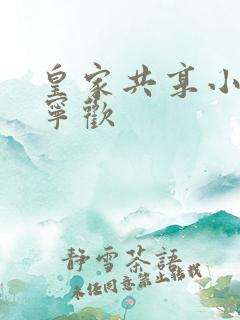 皇家共享小
寧歡
靜雪茶語
未經同意禁止轉載